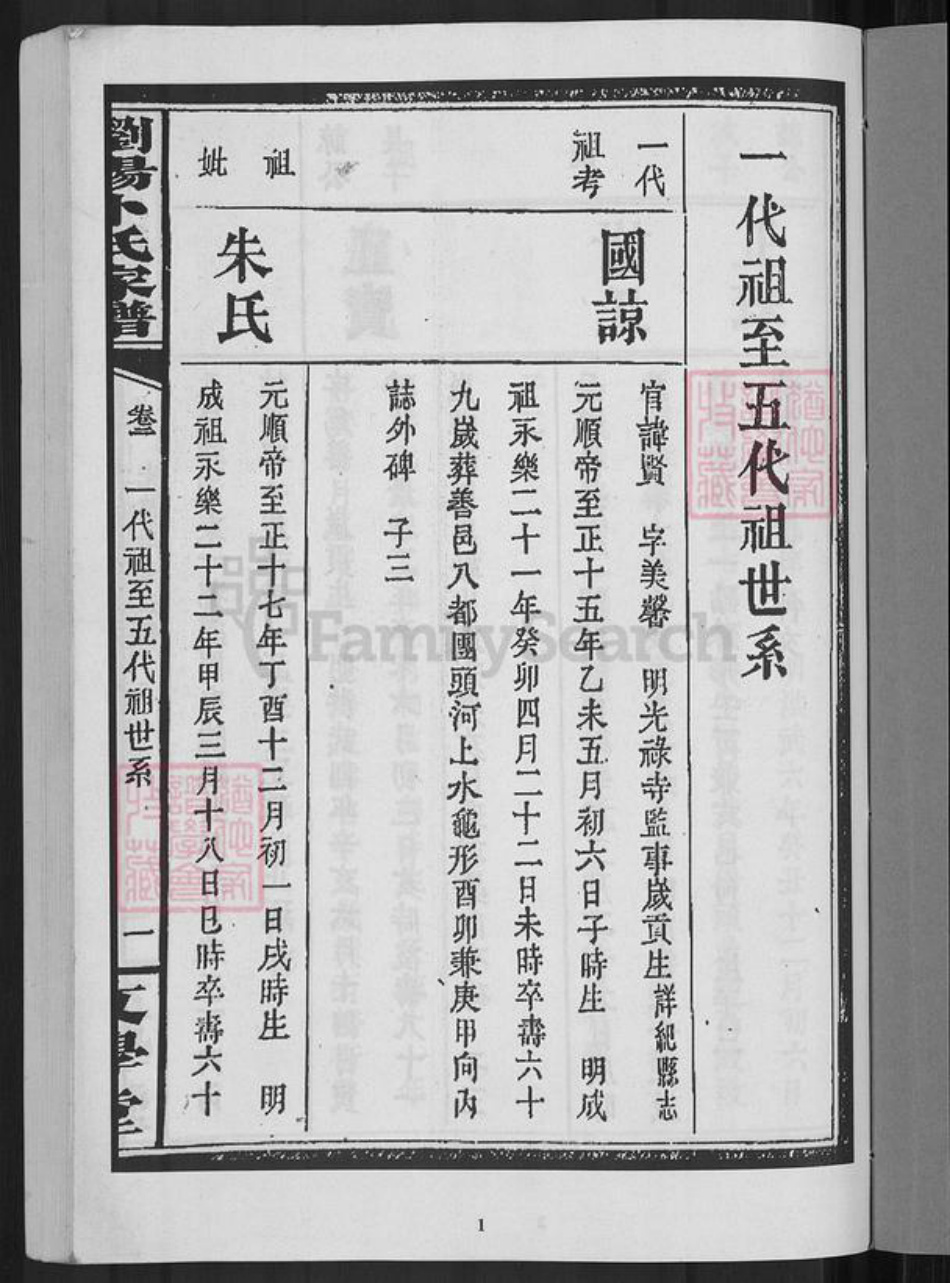 一代祖至五代祖世系
一代
祖考
國諒
官諱賢 字美馨 明光祿寺監事歲貢生詳紀縣志
元順帝至正十五年乙未五月初六日子時生 明成
祖永樂二十一年癸卯四月二十二日未時卒壽六十
九歲葬善邑八都團頭河上水龜形酉卯兼庚甲向內
誌外碑 子三
祖妣
朱氏
元順帝至正十七年丁酉十二月初一日戌時生 明
成祖永樂二十二年甲辰三月十八日巳時卒壽六十
氏家譜
卷二 一代祖至五代祖世系
FamilySearch
1